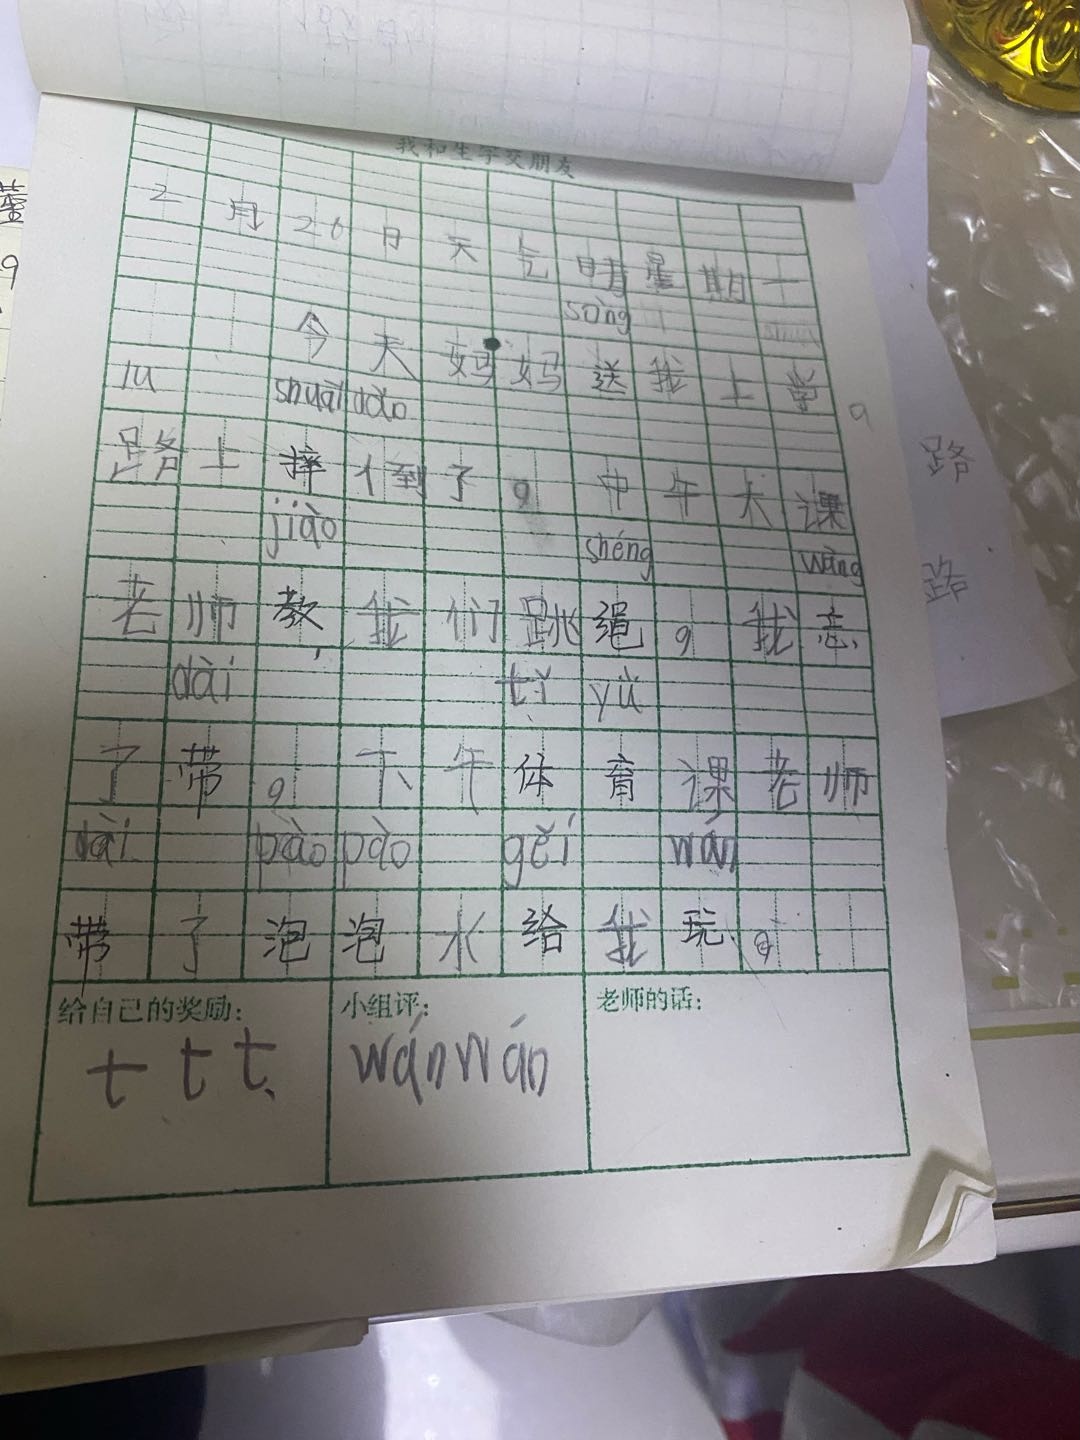 我和生字交朋友
2月26日天气晴星期一
sòng
今天妈妈送我上学
lu shuāi dào
路上摔倒了。中午大课
jiāo shéng wàng
老师教我们跳绳,我忘
dài tǐ yù
了带。下午体育课老师
dài pào pào gěi wán
带了泡泡水给我玩。
给自己的奖励: 小组评: 老师的话:
t t t wánwán
路
路